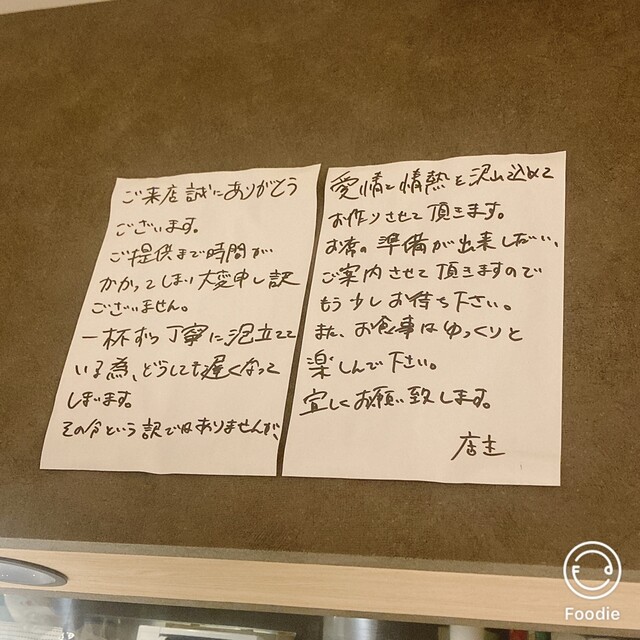 ご来店誠にありがとう
ございます。
ご提供まで時間が
かかってしまい大変申し訳
ございません。
一杯ずつ丁寧に泡立てて
いる為、どうしても遅くなって
しまいます。
その分という訳ではありませんが、
愛情と情熱を沢山込めて
お作りさせて頂きます。
お席の準備が出来しだい、
ご案内させて頂きますので
もう少しお待ち下さい。
また、お食事はゆっくりと
楽しんで下さい。
宜しくお願い致します。
店主
Foodie